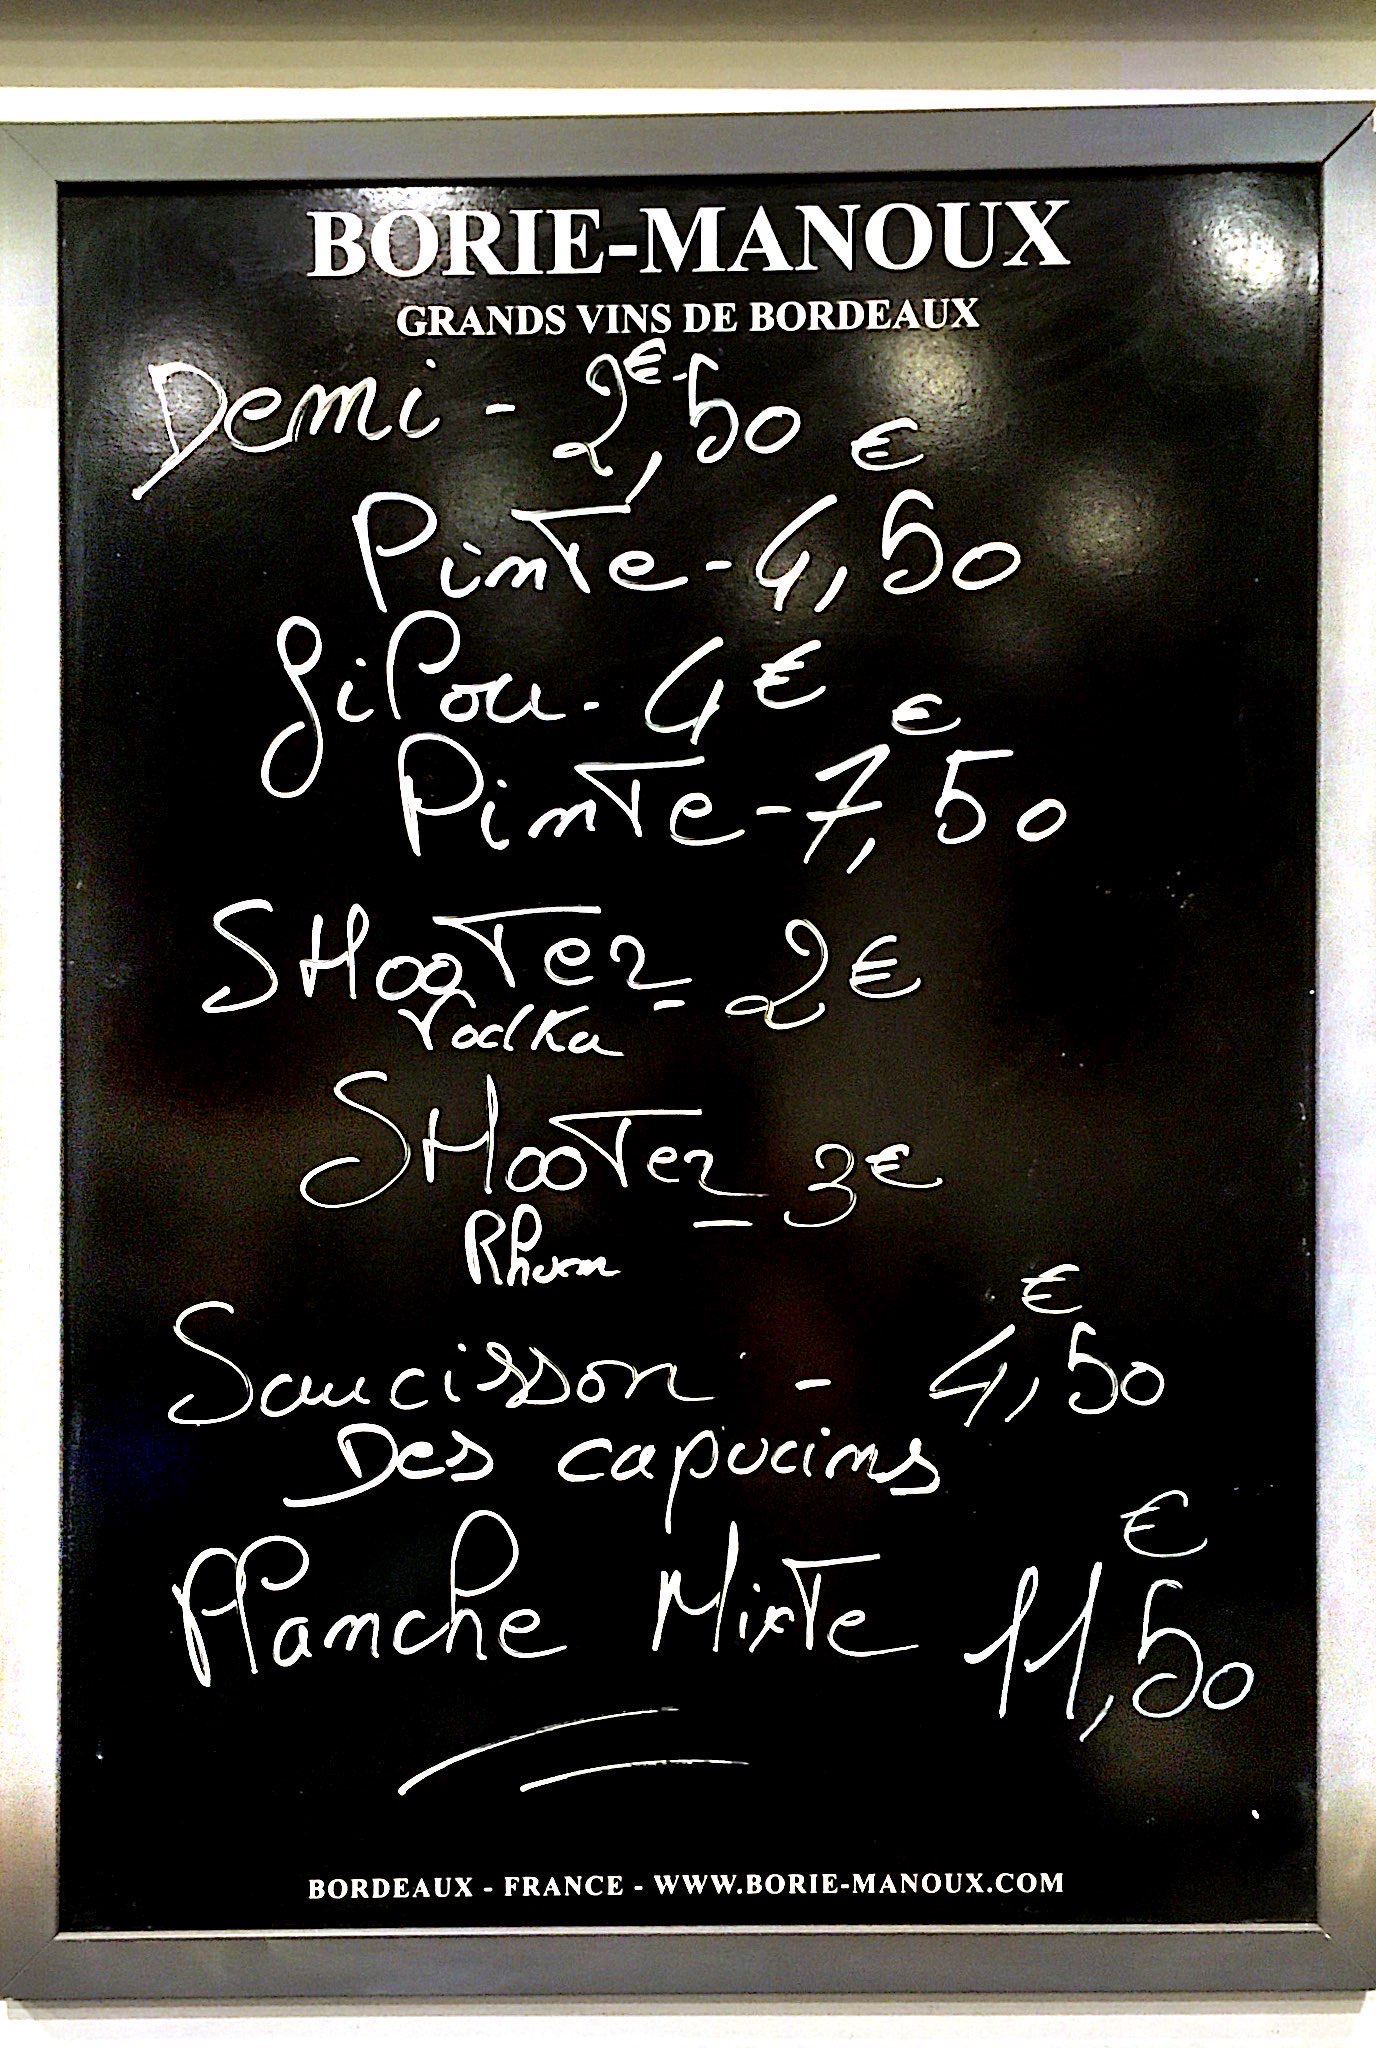 BORIE-MANOUX
GRANDS VINS DE BORDEAUX
Demi - 2€,50
Pinte - 4,50 €
Jilou - 4€
Pinte - 7,50 €
SHooTer - 2€
Vodka
SHooTer - 3€
Rhum
Saucisson - 4,50 €
Des capucins
Planche MixTe 11,50 €
BORDEAUX - FRANCE - WWW.BORIE-MANOUX.COM